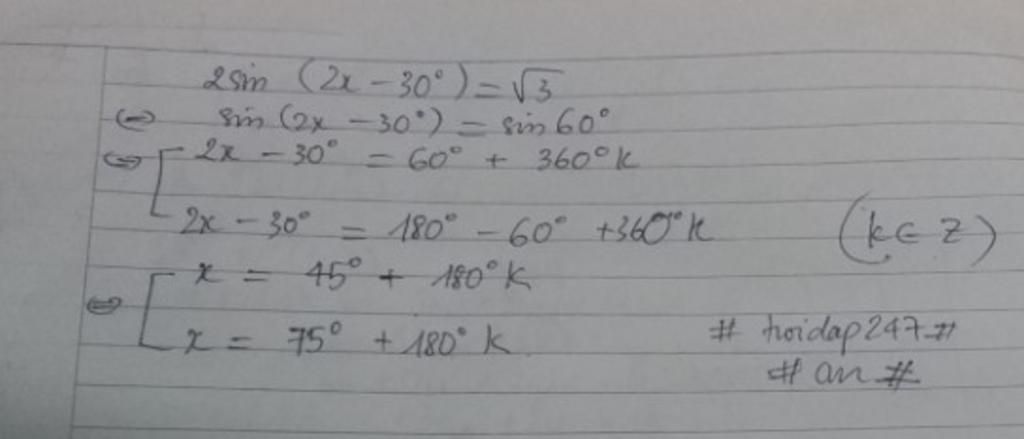 2sin (2x - 30°) = √3
⇔ sin (2x - 30°) = sin 60°
⇔ [ 2x - 30° = 60° + 360°k
2x - 30° = 180° - 60° + 360°k (k ∈ Z)
⇔ [ x = 45° + 180°k
x = 75° + 180°k # hoidap247 #
# an #